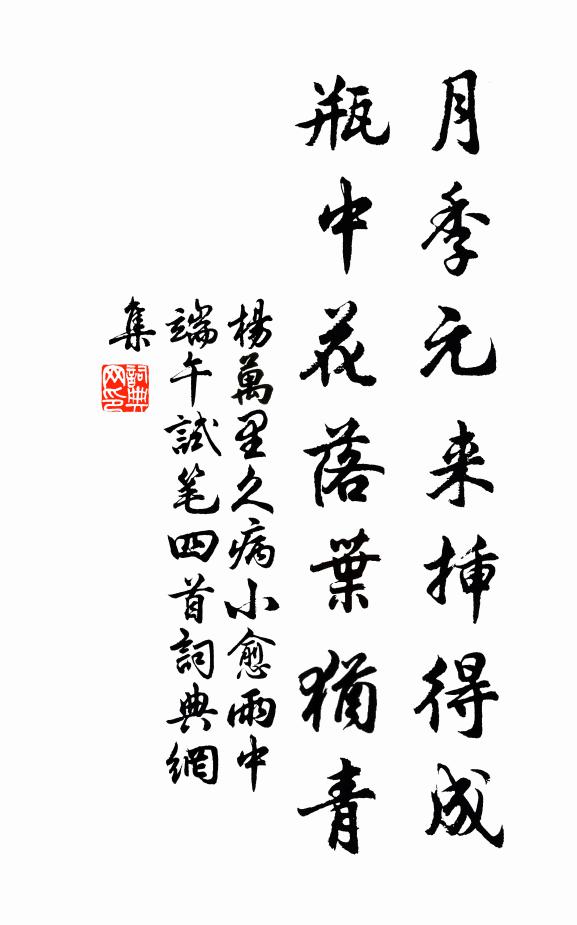 月季元来挿得成
瓶中花落葉猶青
楊萬里久病小愈雨中
端午試笔四首詞典網
集
詞典
网印